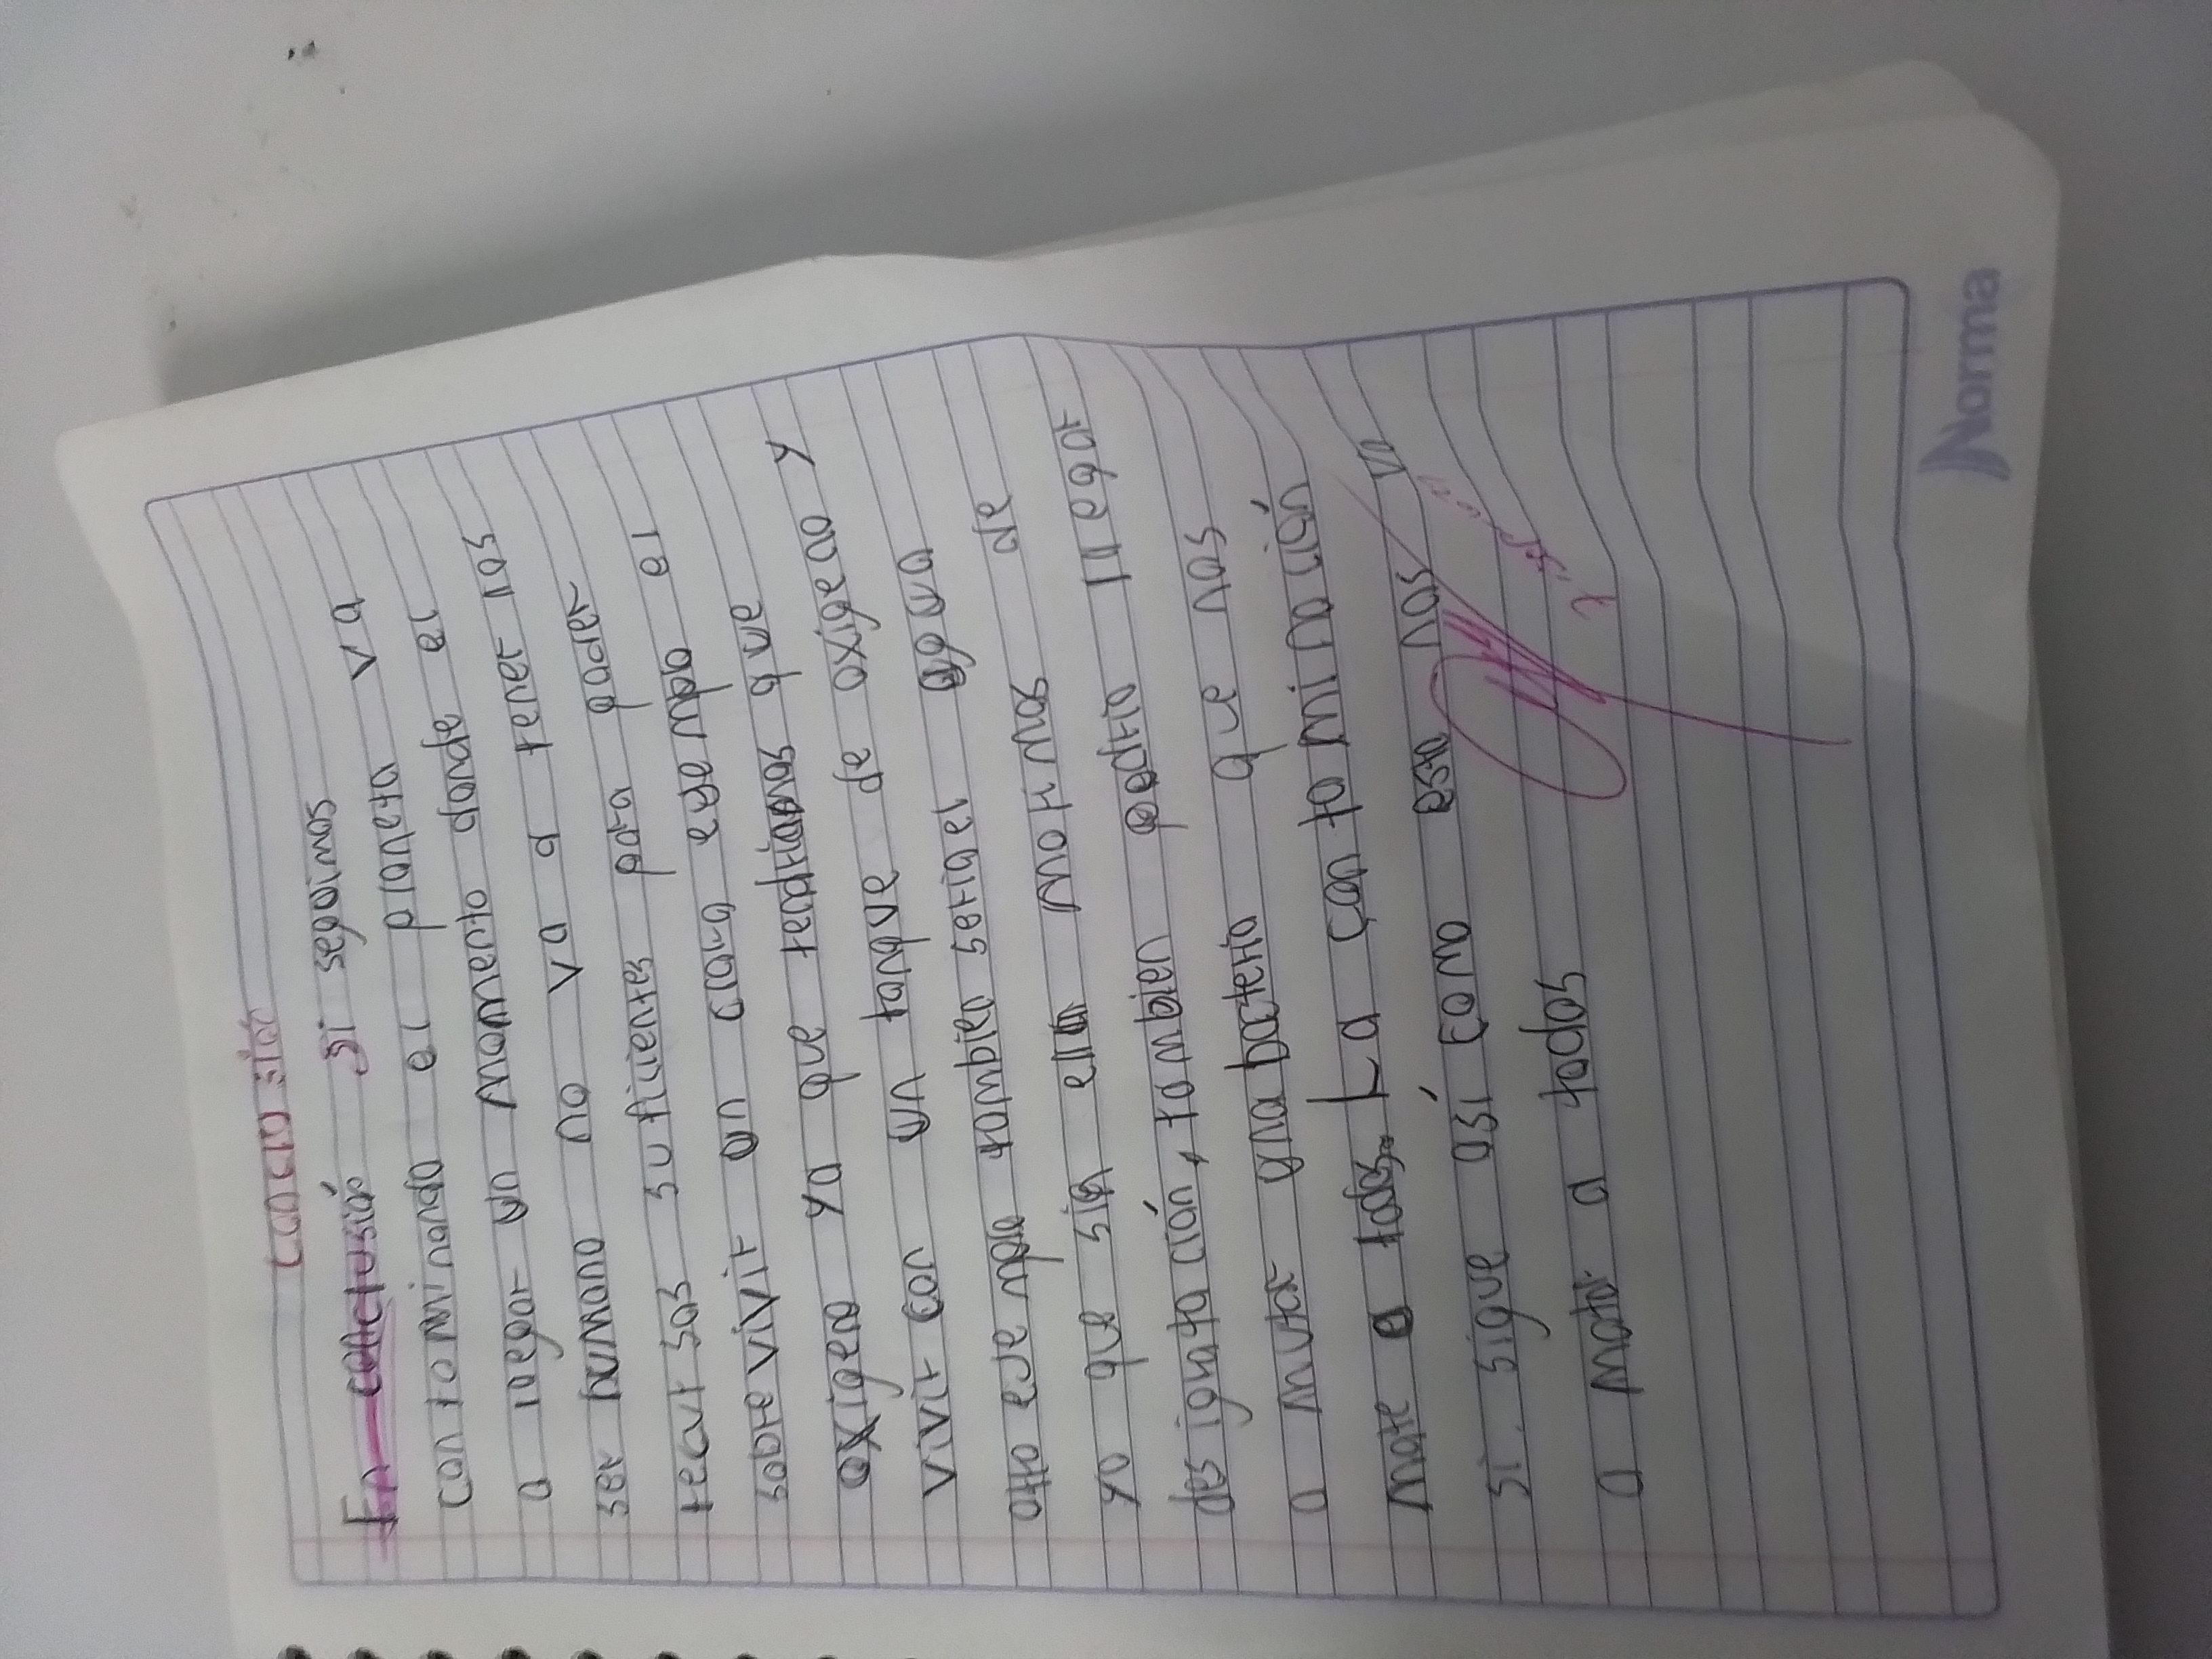 conclusión
En conclusión si seguimos
contominando el planeta va
a legar un momento donde el
ser humano no va a tener los
recursos sufucientes para poder
sobrevivir un claro ejempo el
oxigeno ya que tendriamos que
vivir con un tanque de oxigeno y
otro ejempo tambien seria el agua
ya que sin ella morimos de
designatación, tambien podria llegar
a mutar una bacteria que nos
mate a todos. La contominación
si sigue así como esta nos va
a matar a todos
Norma